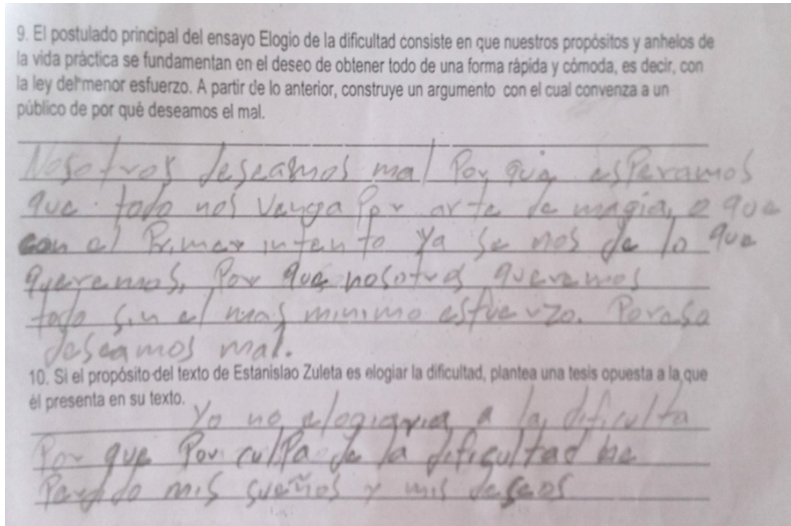 9. El postulado principal del ensayo Elogio de la dificultad consiste en que nuestros propósitos y anhelos de
la vida práctica se fundamentan en el deseo de obtener todo de una forma rápida y cómoda, es decir, con
la ley del menor esfuerzo. A partir de lo anterior, construye un argumento con el cual convenza a un
público de por qué deseamos el mal.
Nosotros deseamos mal Por que esperamos
que todo nos venga Por arte de magia, o que
con el Primer intento ya se nos de lo que
queremos, Por que nosotros queremos
todo sin el mas minimo esfuerzo. Por eso
deseamos mal.
10. Si el propósito del texto de Estanislao Zuleta es elogiar la dificultad, plantea una tesis opuesta a la que
él presenta en su texto.
Yo no elogiaria a la dificulta
Por que Por culpa de la dificultad he
Perdido mis sueños y mis deseos